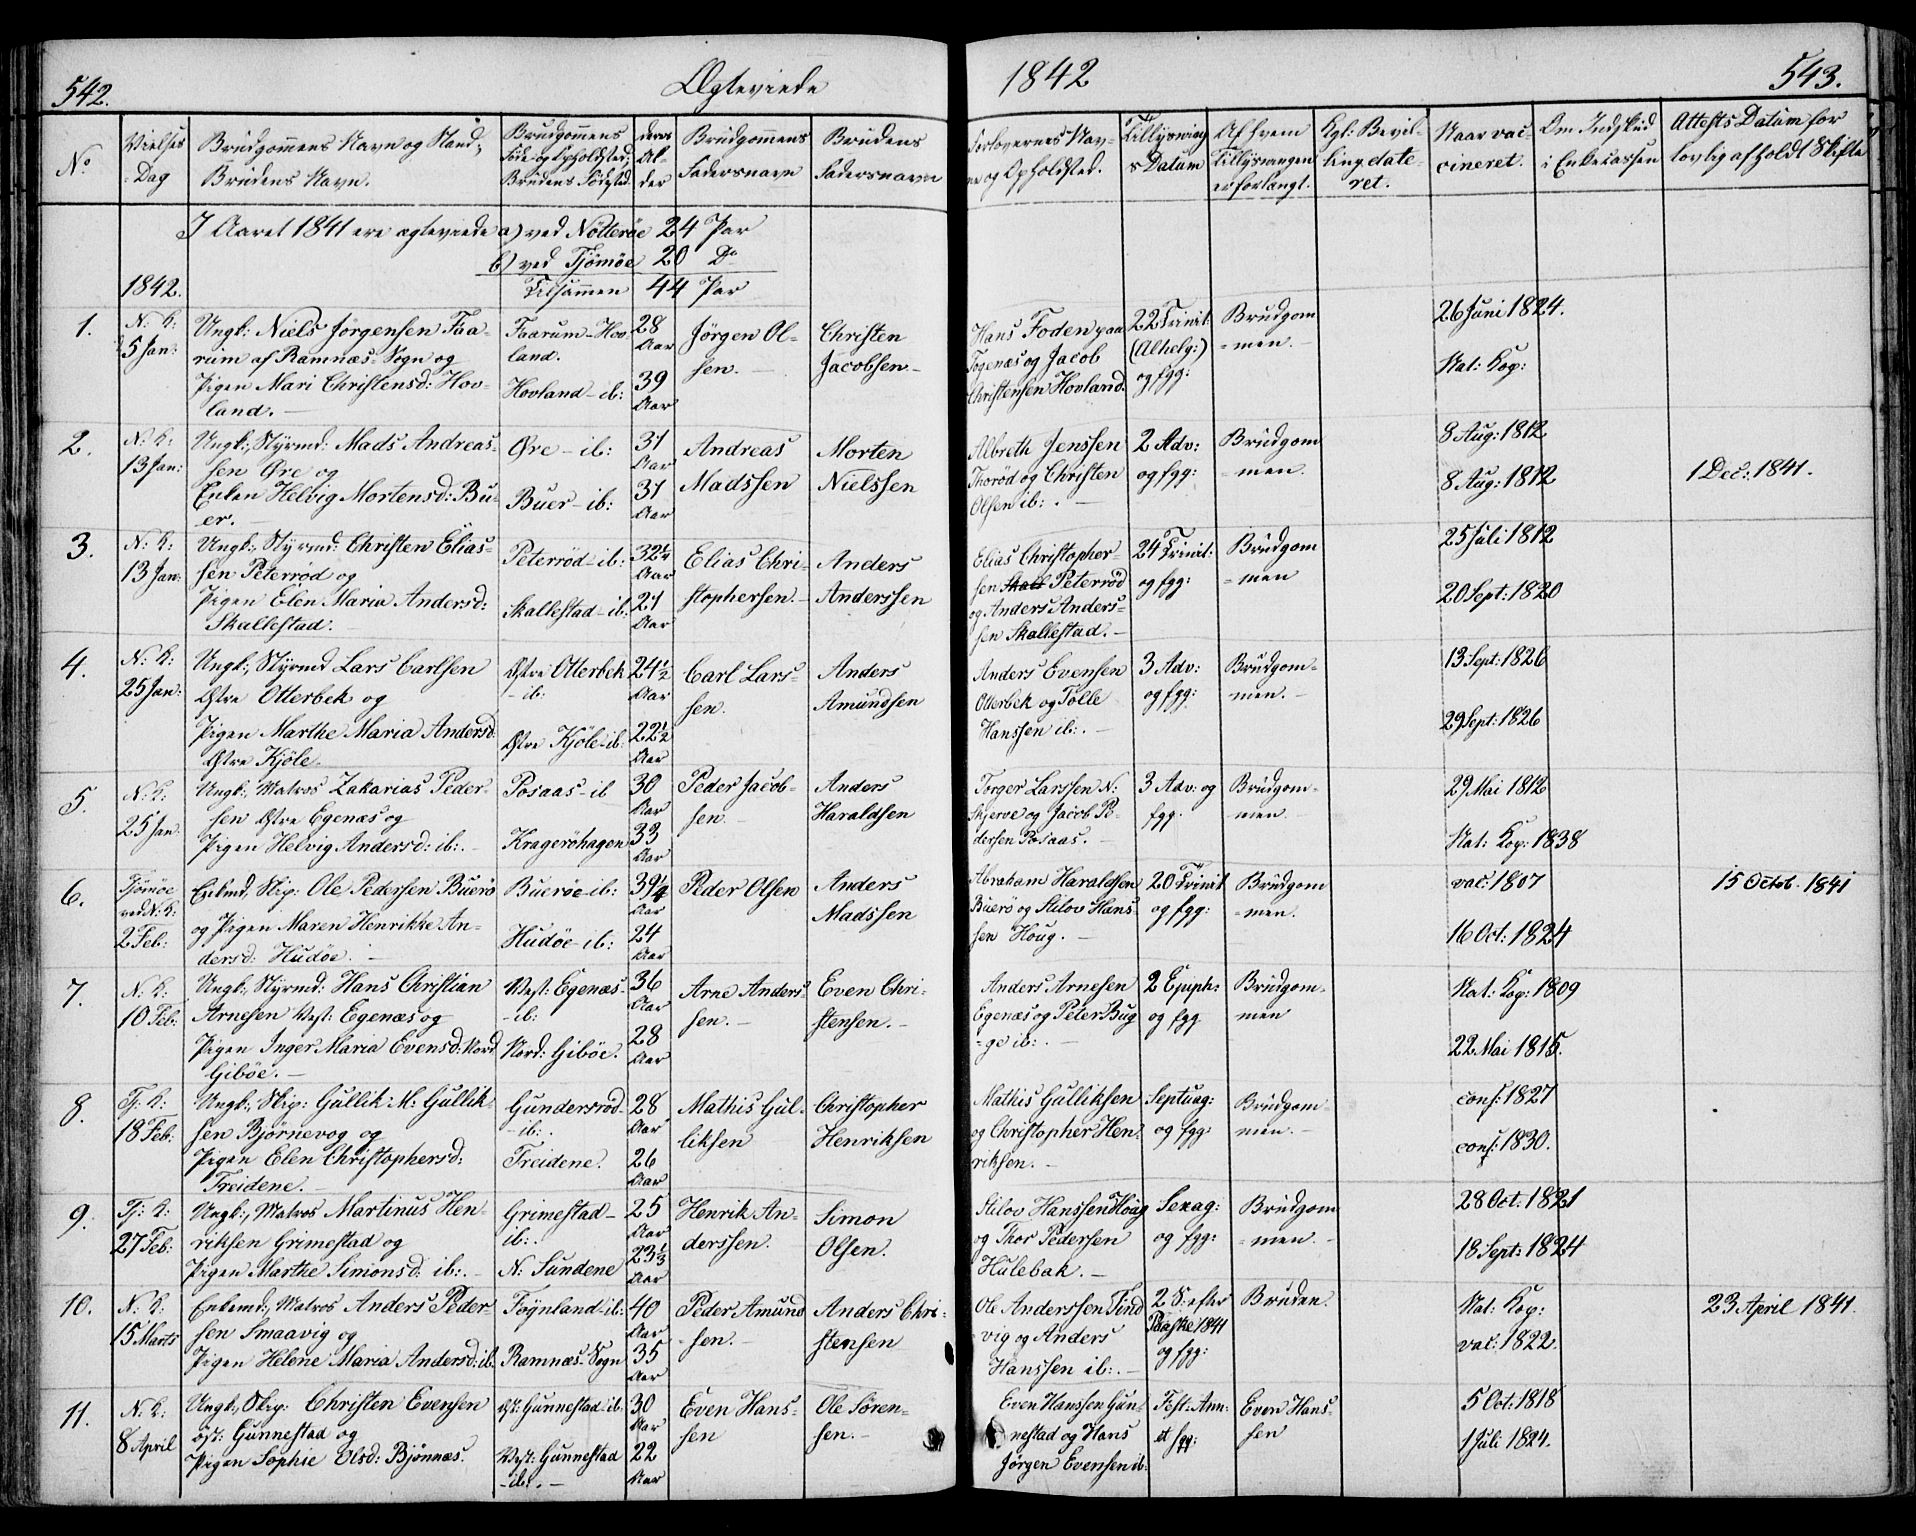 542.
Ægteviede
1842
543.
No
Vielses
-Dag
Brudgommens Navn og Stand;
Brudens Navn.
Brudgommens
Føde- og Opholdsted;
Brudens Fødested
deres
Al-
der
Brudgommens
Fadersnavn
Brudens
Fadersnavn
Forlovernes Nav-
ne og Opholdsted.
Tillysning
s Datum
Af hvem
Tillysningen
er forlangt.
Kgl: Bevil-
ling date-
ret.
Naar vac-
cineret.
Om Indskud
i Enkecassen
Attests Datum for
lovlig afholdt Skifte
I Aaret 1841 ere ægteviede a) ved Nötteröe 24 Par
b) ved Tjömöe 20 Do
Tilsammen 44 Par
1842.
1.
N: K:
5 Jan:
Ungk: Niels Jörgensen Faa-
rum af Ramnæs Sogn og
Pigen Mari Christensd: Hov-
land. -
Faarum-Hov-
land.
Hovland - ib:
28
Aar
39
Aar
Jørgen Ol-
sen. -
Christen
Jacobsen -
Hans Foden paa
Togenæs og Jacob
Christensen Hovland.
22 Trinit:
(Alhelg:)
og fgg:
Brudgom
=men. -
26 Juni 1824.
Nat: Kop:
2.
N: K:
13 Jan:
Ungk:, Styrmd: Mads Andreas-
sen Øre og
Enken Helvig Mortensd: Bu-
er. -
Øre - ib:
Buer - ib:
31
Aar
31
Aar
Andreas
Madssen
Morten
Nielssen
Albreth Jenssen
Thoröd og Christen
Olsen ib: . -
2 Adv:
og fgg:
Brudgom
=men.
8 Aug: 1812
8 Aug: 1812
1 Dec: 1841.
3.
N: K:
13 Jan:
Ungk:, Styrmd: Christen Elias-
sen Peterröd og
Pigen Elen Maria Andersd:
Skallestad. -
Peterröd - ib:
Skallestad - ib:
32¼
Aar
21
Aar
Elias Chri-
stophersen. -
Anders
Anderssen
Elias Christopher-
sen Skall Peterröd
og Anders Anders-
sen Skallestad. -
24 Trinit:
og fgg:
Brudgom
=men
25 Juli 1812
20 Sept: 1820
4.
N: K:
25 Jan:
Ungk:, Styrmd Lars Carlsen
Østre Otterbek og
Pigen Marthe Maria Andersd:
Østre Kjöle.
Østre Otterbek
- ib:
Østre Kjöle - ib:
24½
Aar
22½
Aar
Carl Lars-
sen.
Anders
Amundsen
Anders Evensen
Otterbek og Tolle
Hanssen ib: . -
3 Adv:
og fgg:
Brudgom-
men. -
13 Sept: 1826
29 Sept: 1826
5.
N: K:
25 Jan:
Ungk:, Matros Zakarias Peder-
sen Østre Egenæs og
Pigen Helvig Andersd: ib: . -
Posaas - ib
Krageröhagen
30
Aar
33
Aar
Peder Jacob-
sen. -
Anders
Haraldsen
Torger Larssen N:
Skjerve og Jacob Pe-
dersen Posaas. -
3 Adv: og
fgg.
Brudgom-
men. -
29 Mai 1812
Nat: Kop: 1838
6.
Tjömöe
ved N: K:
2 Feb:
Enkmd:, Skip: Ole Pedersen Buerö
og Pigen Maren Henrikke An-
dersd: Hudöe. -
Bueröe - ib:
Hudöe - ib:
39¼
Aar
24
Aar
Peder Olsen
Anders
Madssen
Abraham Haraldsen
Buerö og Stilov Hans-
sen Houg. -
20 Trinit
og fgg:
Brudgom
=men.
vac: 1807
16 Oct: 1824
15 Octob. 1841
7.
N: K:
10 Feb:
Ungk:, Styrmd: Hans Christian
Arnesen Vest: Egenæs og
Pigen Inger Maria Evensd: Nord
Giböe. -
Vest: Egenæs-
- ib:
Nord: Giböe.
36
Aar
28
Aar
Arne Anders-
sen. -
Even Chri-
stensen. -
Anders Arnesen
Egenæs og Peter Bug
=ge ib: . -
2 Epiph:
og fgg
Brudgom-
men
Nat: Kop: 1809
22 Mai 1815.
8.
Tj: K:
18 Feb:
Ungk:, Skip: Gullik M: Gullik-
sen Bjørnevog og
Pigen Elen Christophersd:
Treidene. -
Gundersröd-
- ib: .
Treidene.
28
Aar
26
Aar
Mathis Gul-
liksen
Christopher
Henriksen
Mathis Gulliksen
og Christopher Hen-
riksen. -
Septuag:
og fgg:
Brudgom-
men. -
conf: 1827
conf: 1830.
9.
Tj: K:
27 Feb:
Ungk:, Matros Martinus Hen-
riksen Grimestad og
Pigen Marthe Simonsd: ib: . -
Grimestad -
ib: .
N: Sundene
25
Aar
23⅓
Aar
Henrik An-
derssen.
Simon
Olsen.
Stilov Hanssen Houg
og Thor Pedersen
Hulebak. -
Sexag:
og fgg:
Brudgom
=men. -
28 Oct: 1821
18 Sept: 1824
10.
N: K:
15 Marts
Enkemd:, Matros Anders Peder-
sen Smaavig og
Pigen Helene Maria Andersd: ib.
Föynland - ib:
Ramnæs Sogn
40
Aar
35
Aar
Peder Amund
- sen. -
Anders Chri-
stensen
Ole Anderssen Tind
vig og Anders
Hanssen ib: . -
2 S: efter
Paaske 1841
og fgg:
Bruden.
Nat: Kop:
vac: 1822.
23 April 1841.
11.
N: K:
8 April
Ungk:, Skip: Christen Evensen
öst: Gunnestad og
Pigen Sophie Olsd: Bjönnæs.
Øst: Gunnestad - ib:
Vest: Gunnestad
- ib: . -
30
Aar
22
Aar
Even Hans-
sen
Ole Sören-
sen. -
Even Hanssen Gun-
nestad og Hans
Jörgen Evensen ib:
Fest: Ann:
et fgg:
Even Hans-
sen
5 Oct: 1818
1 Juli 1824.